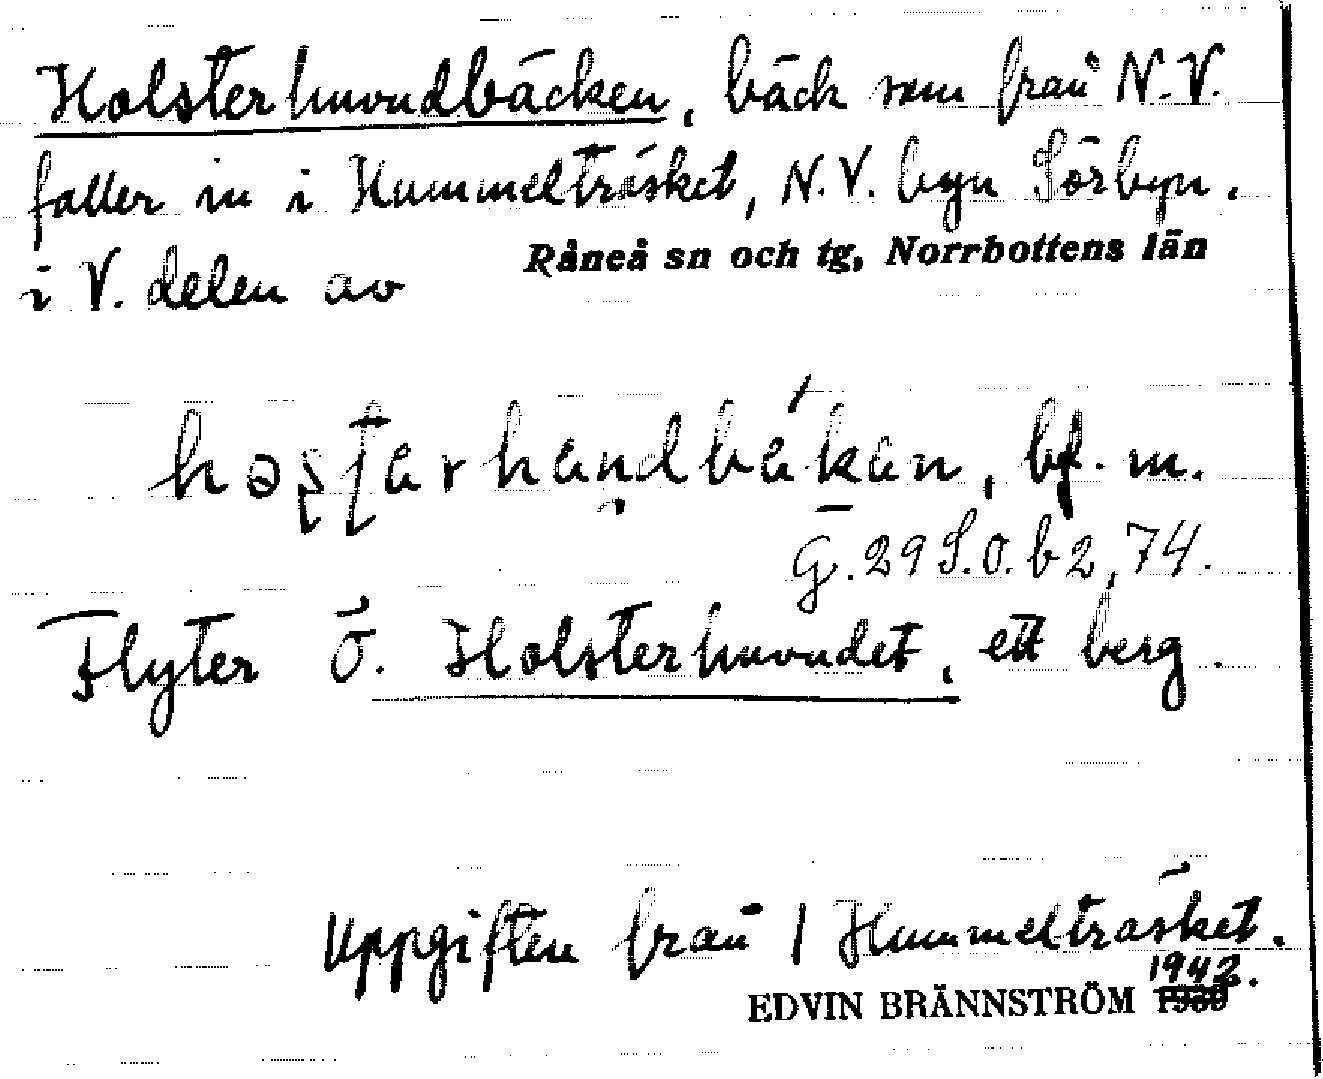 Holsterhuvudbäcken, bäck som från N.V.
faller in i Hummelträsket, N.V. byn Sörbyn.
i V. delen av Råneå sn och tg, Norrbottens län
bf. m.
G. 29 S.O. b 2, 74.
Flyter Ö. Holsterhuvudet, ett berg.
Uppgiften från 1 Hummelträsket.
EDVIN BRÄNNSTRÖM 1942.